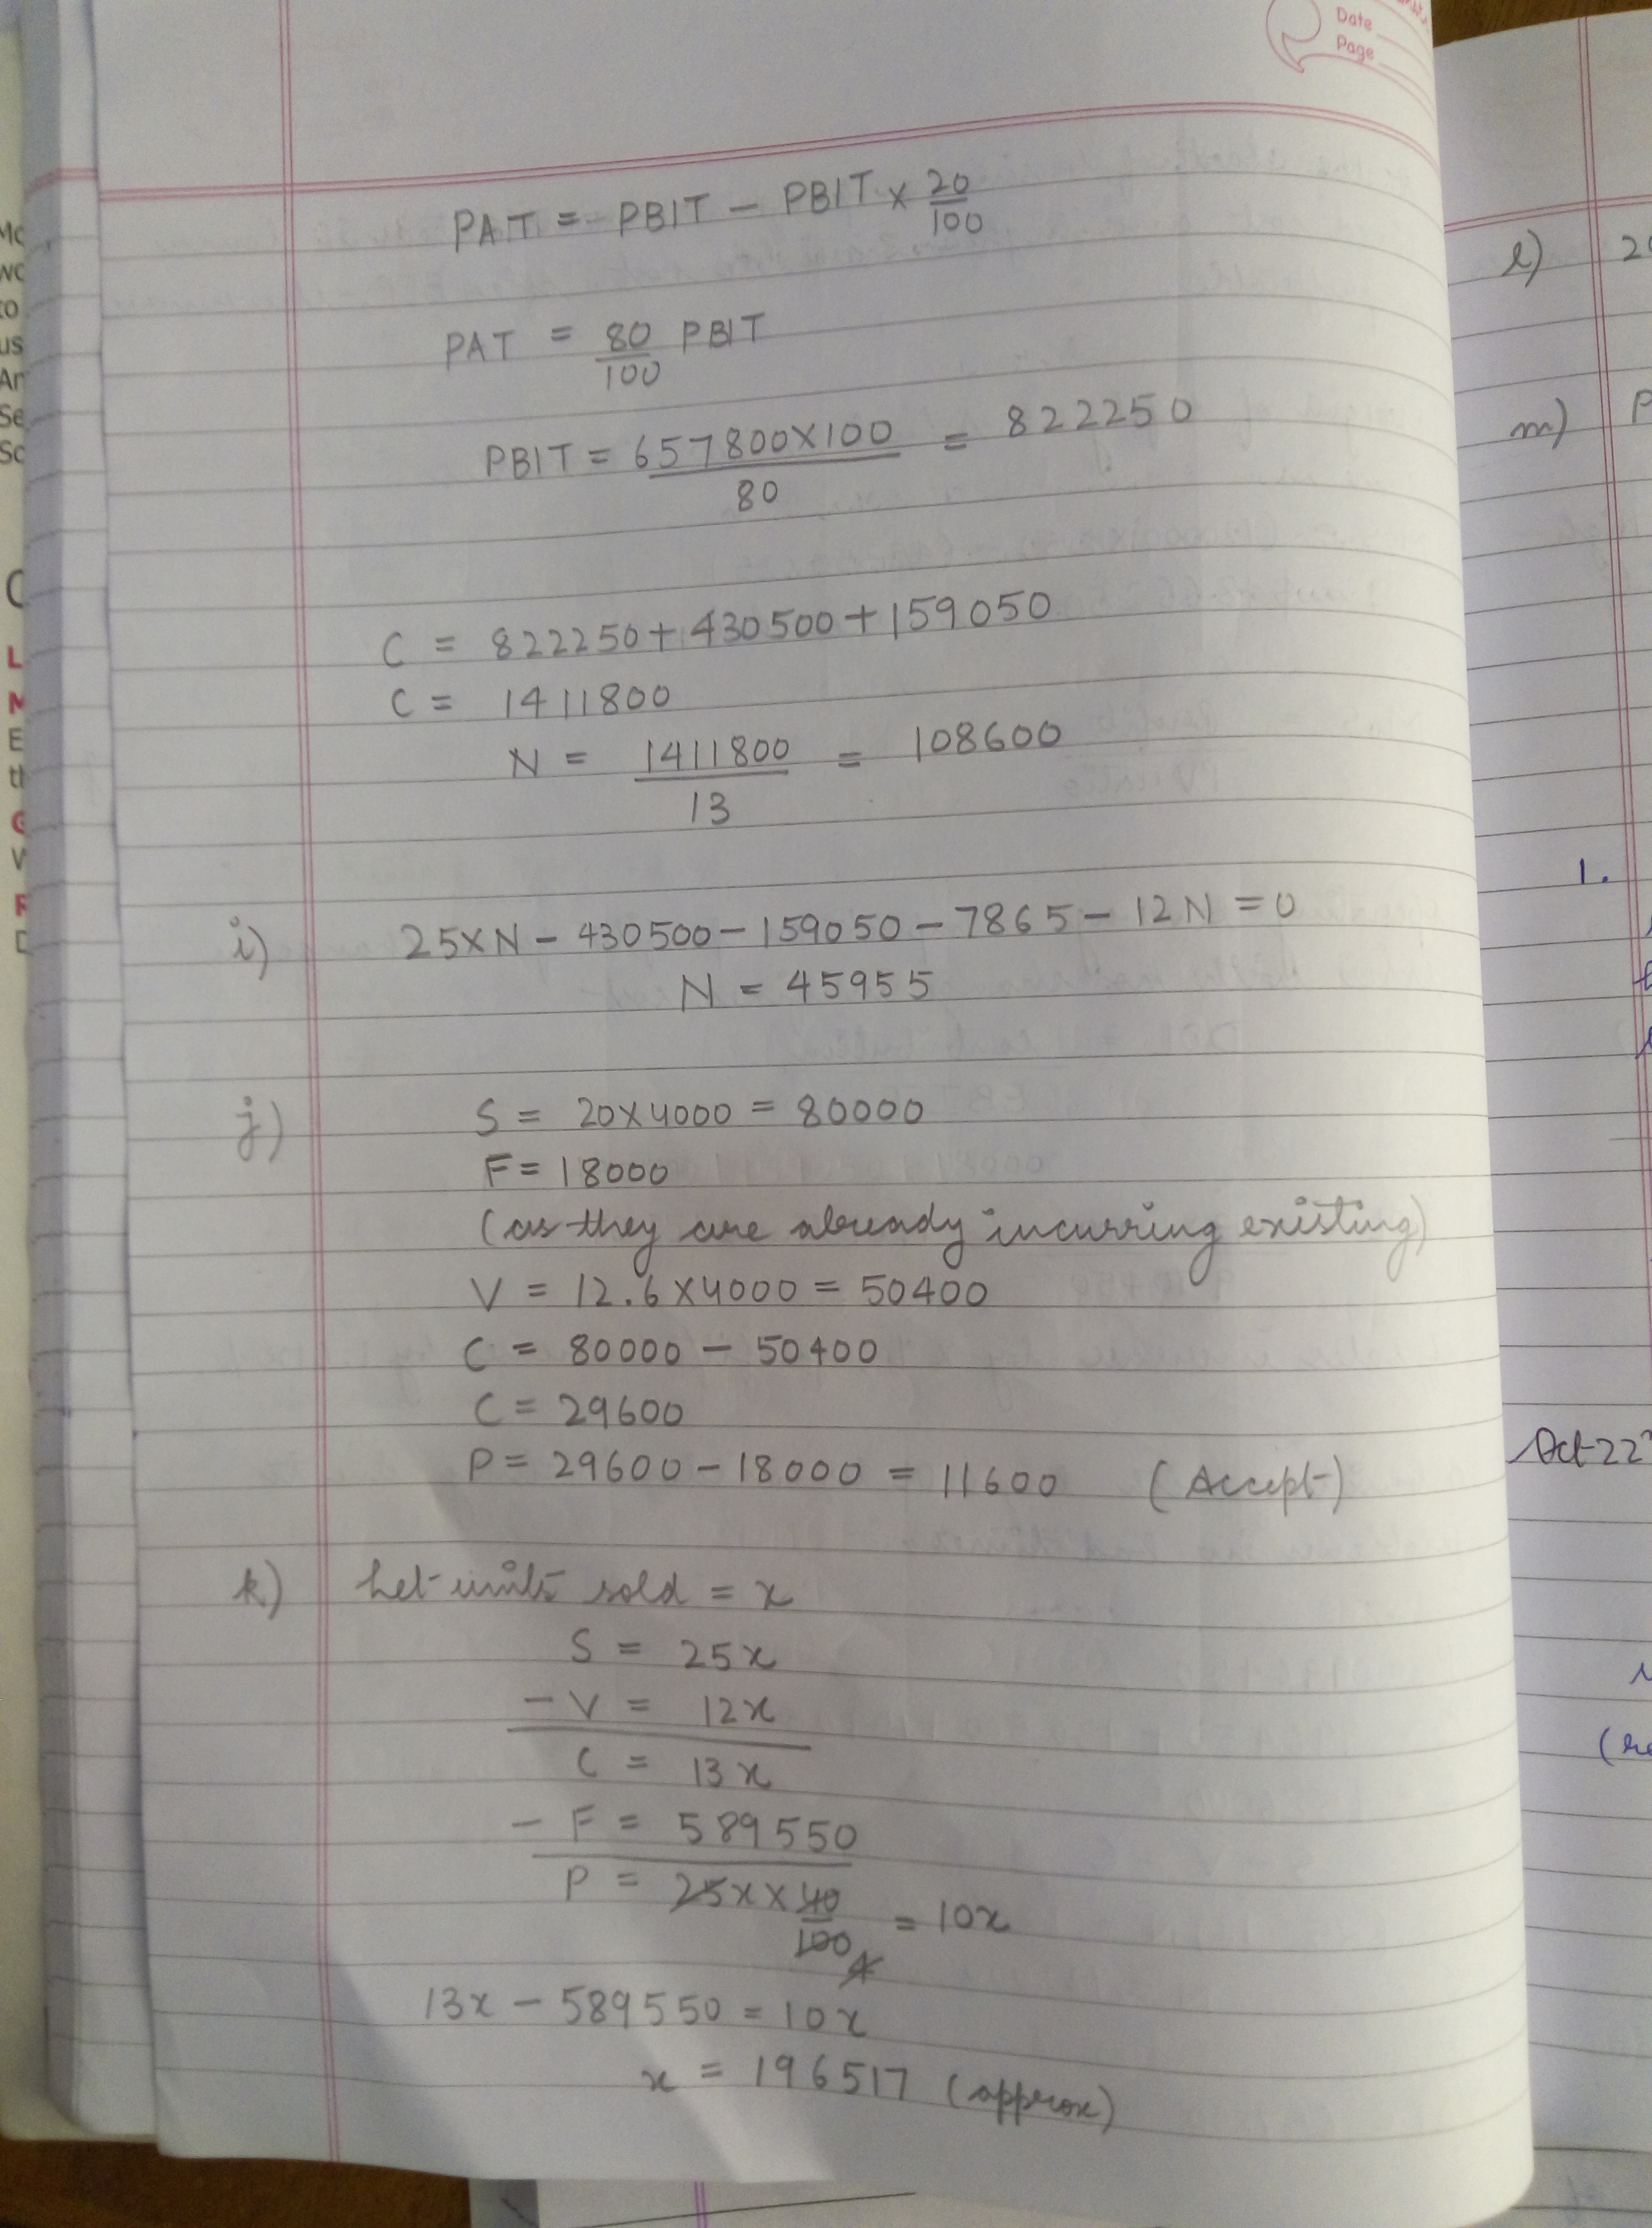 Date
Page
PAT = PBIT - PBIT × 20/100
PAT = 80/100 PBIT
PBIT = 657800×100/80 = 822250
C = 822250+430500+159050
C = 1411800
N = 1411800/13 = 108600
i) 25×N - 430500-159050-7865-12N=0
N = 45955
j) S = 20×4000 = 80000
F=18000
(as they are already incurring existing)
V = 12.6×4000 = 50400
C = 80000 - 50400
C = 29600
P = 29600-18000 = 11600 (Accept)
k) Let units sold = x
S = 25x
- V = 12x
C = 13x
- F = 589550
P = 25x × 40/100 = 10x
13x - 589550 = 10x
x = 196517 (approx)
l)
m)
1.
Oct-22